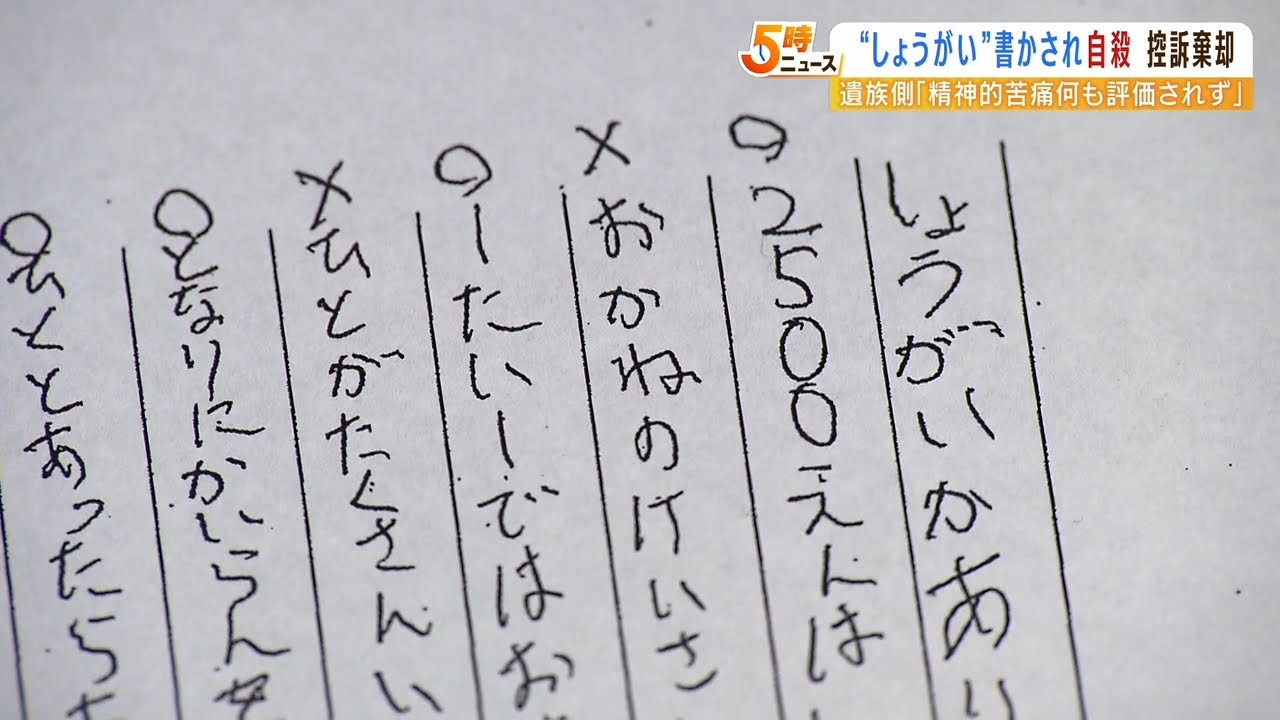 5時ニュース
“しょうがい”書かされ自殺 控訴棄却
遺族側「精神的苦痛何も評価されず」
しょうがいかあり
○2500えんは
×おかねのけいさ
○一たい一ではお
×ひとがたくさんい
○となりにかいらん
○ひととあったら